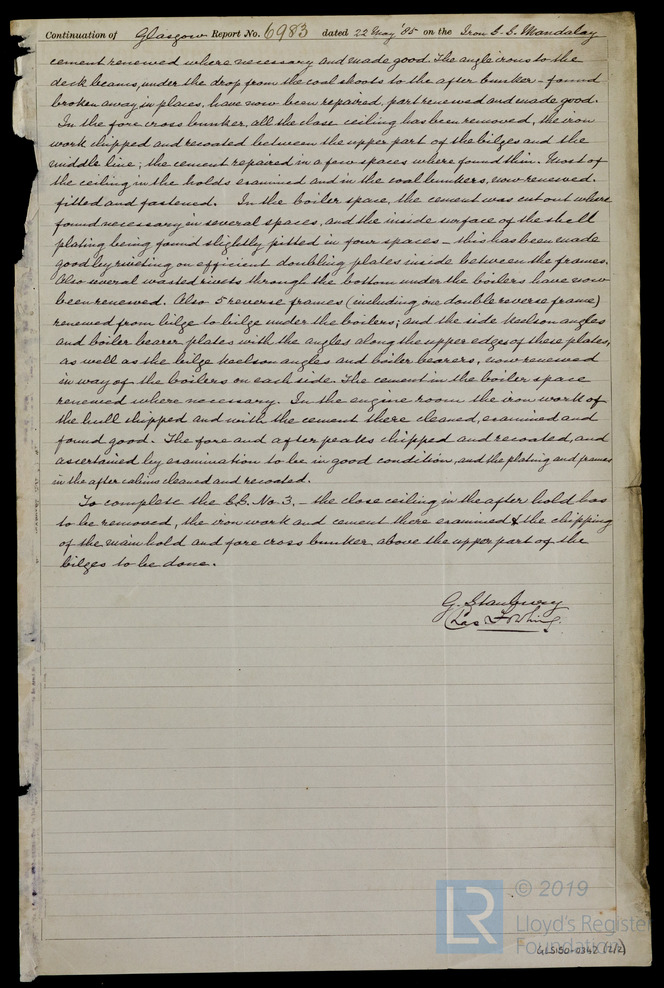 Continuation of Glasgow Report No. 6983 dated 22 May '85 on the Iron S.S. Mandalay
cement renewed where necessary and made good. The angle irons to the
deck beams, under the drop from the coal shoots to the after bunker – found
broken away, in places, have now been repaired, part renewed and made good.
In the fore cross bunker, all the close ceiling has been removed, the iron
work chipped and recoated between the upper part of the bilges and the
middle line; the cement repaired in a few spaces where found thin. Most of
the ceiling in the holds examined and in the coal bunkers, now renewed.
fitted and fastened. In the boiler space, the cement was cut out where
found necessary in several spaces, and the inside surface of the shell
plating being found slightly pitted in four spaces – this has been made
good by riveting on efficient doubling plates inside between the frames.
Also several wasted rivets through the bottom under the boilers have now
been renewed. Also 5 reverse frames (including one double reverse frame)
renewed from bilge to bilge under the boilers; and the side keelson angles
and boiler bearer plates with the angles along the upper edges of these plates,
as well as the bilge keelson angles and boiler bearers, now renewed
in way of the boilers on each side. The cement in the boiler space
renewed where necessary. In the engine room the iron work of
the hull chipped and with the cement there cleaned, examined and
found good. The fore and after peaks chipped and recoated, and
ascertained by examination to be in good condition, and the plating and frames
in the after cabins cleaned and recoated.
To complete the S.S. No. 3, – the close ceiling in the after hold has
to be removed, the iron work and cement there examined & the chipping
of the main hold and fore cross bunker above the upper part of the
bilges to be done.
G. Stanbury
Chas
LR
© 2019
Lloyd's Register
Foundation
GLS150-0342 (2/2)